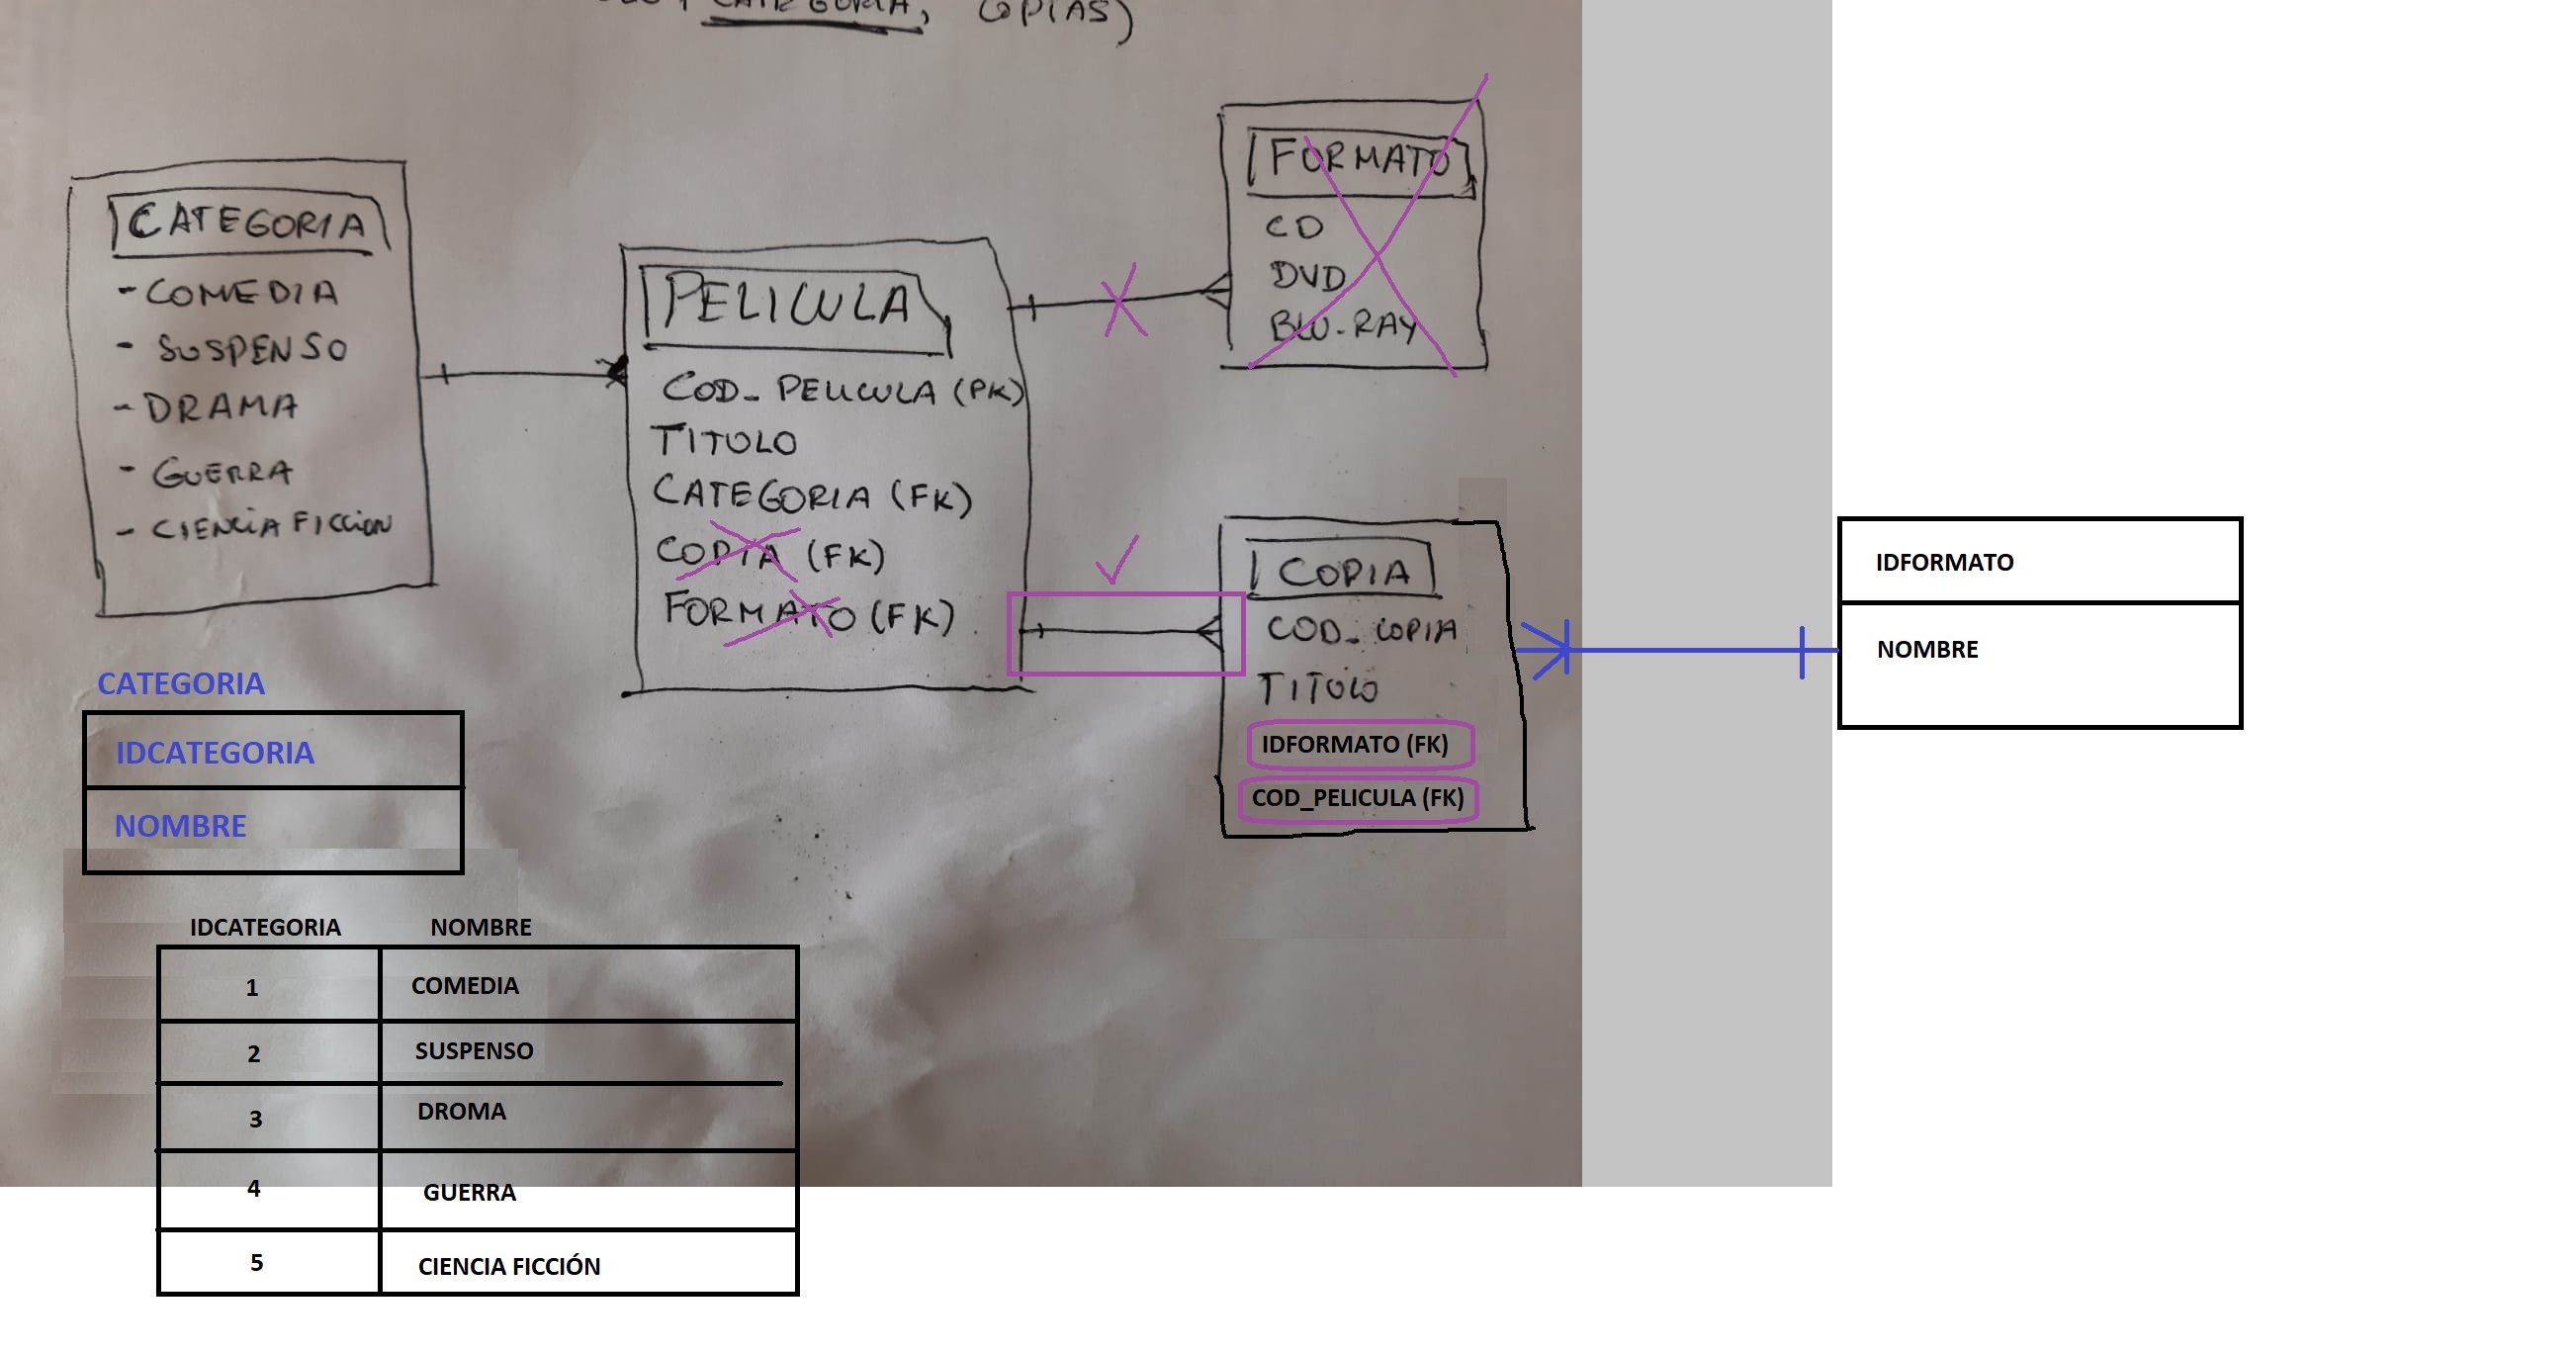 CATEGORIA, COPIAS)
CATEGORIA
- COMEDIA
- SUSPENSO
- DRAMA
- GUERRA
- CIENCIA FICCION
PELICULA
COD_PELICULA (PK)
TITULO
CATEGORIA (FK)
COPIA (FK)
FORMATO (FK)
FORMATO
CD
DVD
BLU-RAY
COPIA
COD_COPIA
TITULO
IDFORMATO (FK)
COD_PELICULA (FK)
IDFORMATO
NOMBRE
CATEGORIA
IDCATEGORIA
NOMBRE
IDCATEGORIA NOMBRE
1 COMEDIA
2 SUSPENSO
3 DROMA
4 GUERRA
5 CIENCIA FICCIÓN